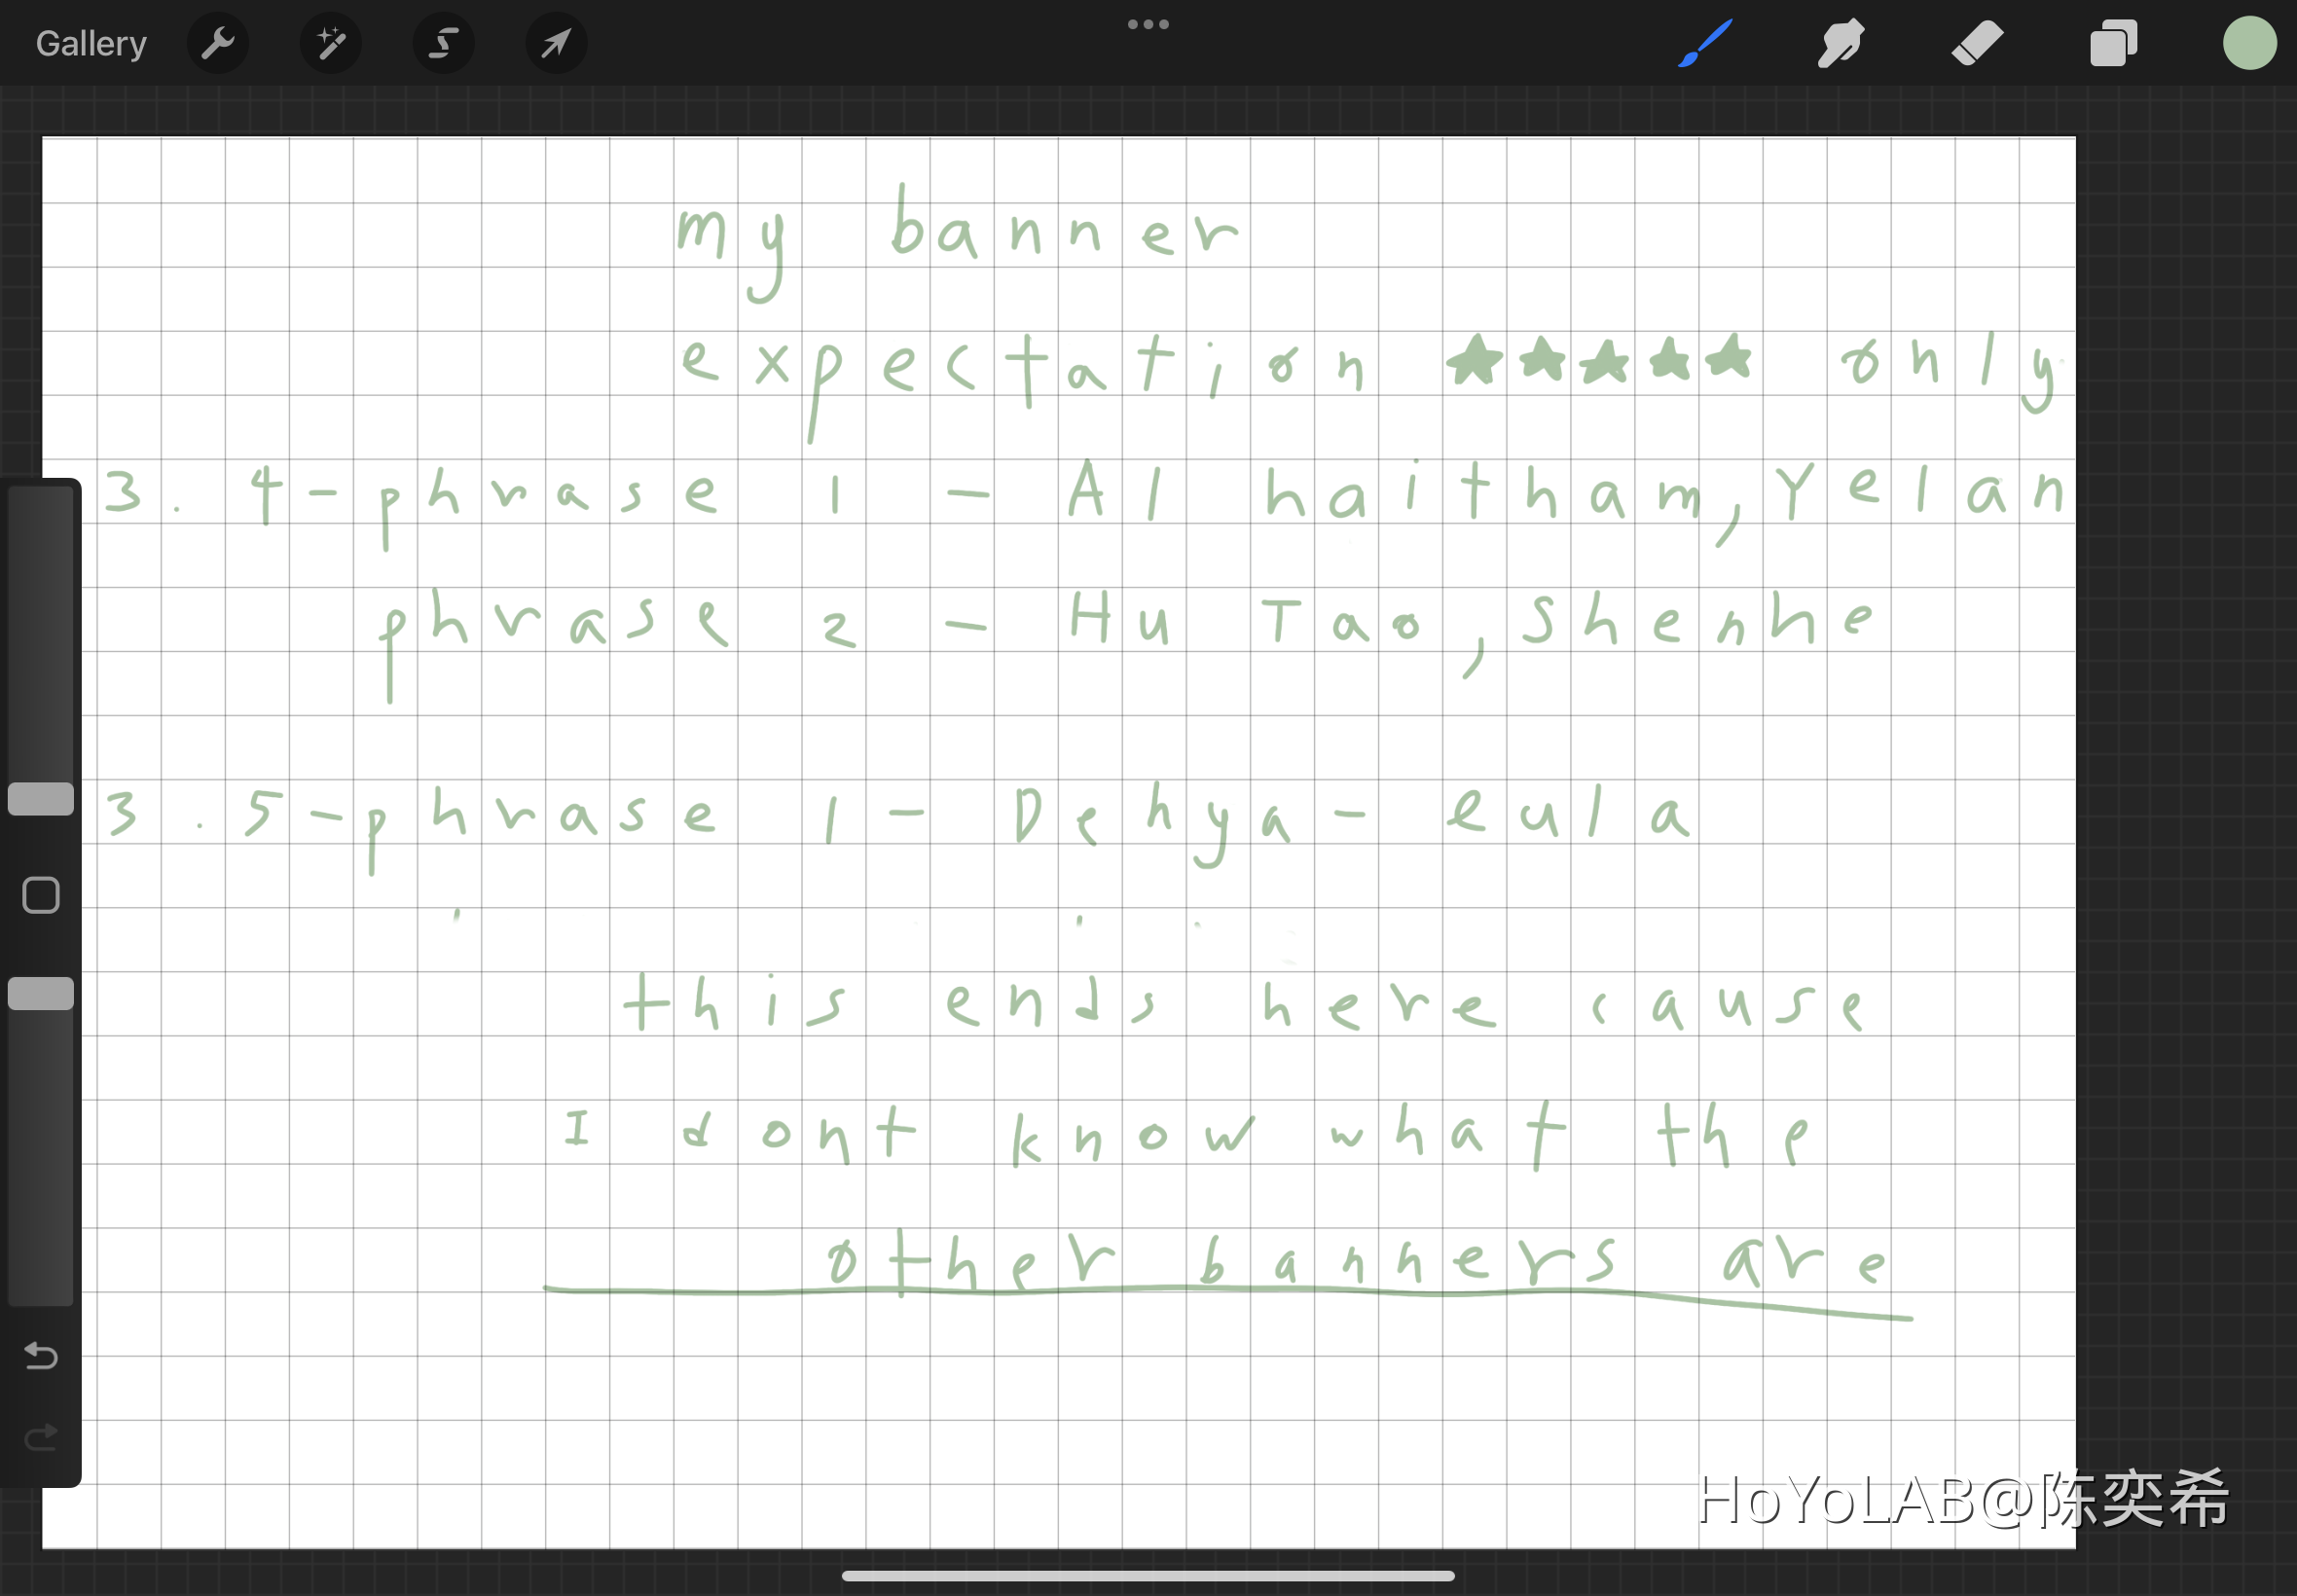 Gallery
my banner
expectation ★★★★★ only
3.4-phrase 1 - Al haitham, Yelan
phrase 2 - Hu Tao, Shenhe
3.5-phrase 1 - Dehya - eula
this ends here cause
I dont know what the
other banners are
HoYoLAB@陈奕希